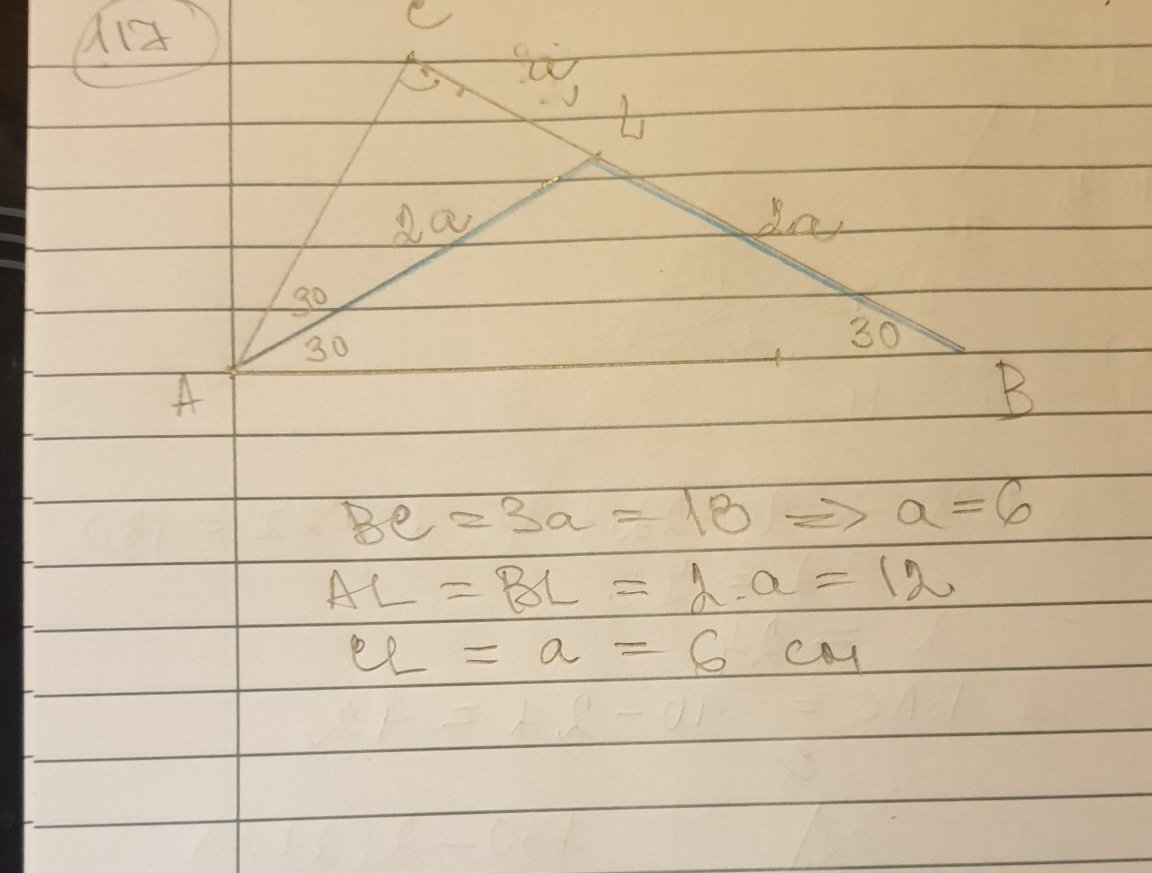 117
C
a
L
2a
2a
30
30
30
A
B
BC = 3a = 18 => a = 6
AL = BL = 2.a = 12
CL = a = 6 см